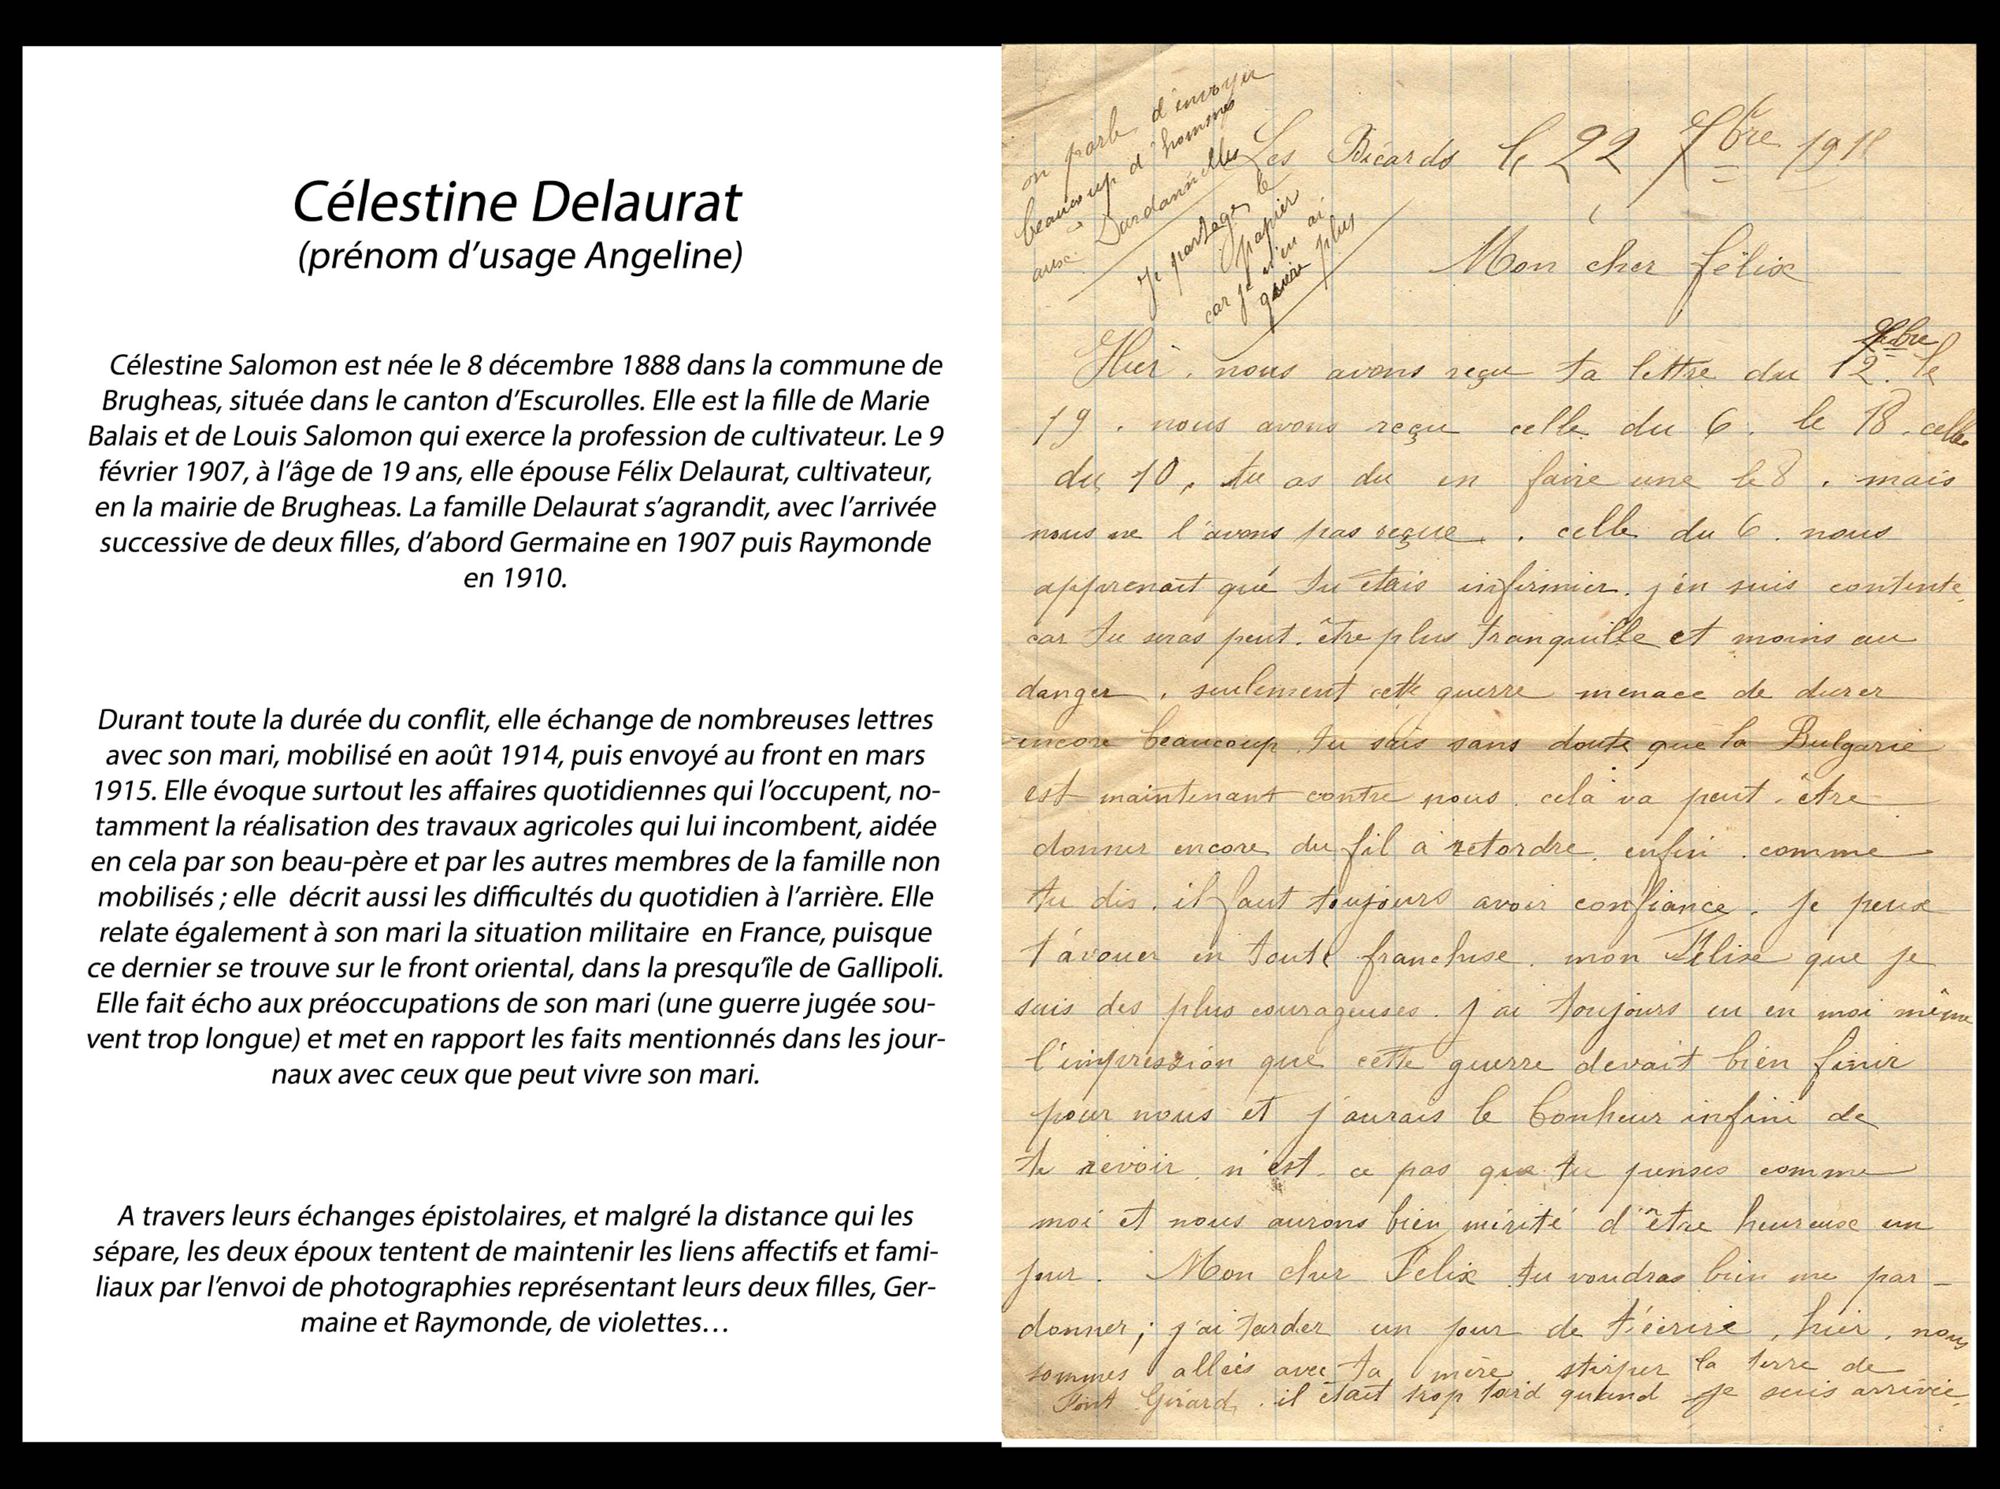 Célestine Delaurat
(prénom d’usage Angeline)
Célestine Salomon est née le 8 décembre 1888 dans la commune de
Brugheas, située dans le canton d’Escurolles. Elle est la fille de Marie
Balais et de Louis Salomon qui exerce la profession de cultivateur. Le 9
février 1907, à l’âge de 19 ans, elle épouse Félix Delaurat, cultivateur,
en la mairie de Brugheas. La famille Delaurat s’agrandit, avec l’arrivée
successive de deux filles, d’abord Germaine en 1907 puis Raymonde
en 1910.
Durant toute la durée du conflit, elle échange de nombreuses lettres
avec son mari, mobilisé en août 1914, puis envoyé au front en mars
1915. Elle évoque surtout les affaires quotidiennes qui l’occupent, no-
tamment la réalisation des travaux agricoles qui lui incombent, aidée
en cela par son beau-père et par les autres membres de la famille non
mobilisés ; elle  décrit aussi les difficultés du quotidien à l’arrière. Elle
relate également à son mari la situation militaire  en France, puisque
ce dernier se trouve sur le front oriental, dans la presqu’île de Gallipoli.
Elle fait écho aux préoccupations de son mari (une guerre jugée sou-
vent trop longue) et met en rapport les faits mentionnés dans les jour-
naux avec ceux que peut vivre son mari.
A travers leurs échanges épistolaires, et malgré la distance qui les
sépare, les deux époux tentent de maintenir les liens affectifs et fami-
liaux par l’envoi de photographies représentant leurs deux filles, Ger-
maine et Raymonde, de violettes…
on parle d'envoyer
beaucoup d'hommes
aux Dardannelles
je partage le
papier
car je n'en ai
guère plus
Les Bicards le 22 7bre
Mon cher félix
Hier, nous avons reçu ta lettre du 12 7bre. le
19, nous avons reçu celle du 6. le 18. celle
du 10, tu as du en faire une le 8, mais
nous ne l'avons pas reçue. celle du 6. nous
apprenait que tu étais infirmier. j'en suis contente,
car tu seras peut-être plus tranquille et moins au
danger, seulement cette guerre menace de durer
encore beaucoup, tu sais sans doute que la Bulgarie
est maintenant contre nous. cela va peut-être
donner encore du fil à retordre. enfin, comme
tu dis, il faut toujours avoir confiance. je peux
t'avouer en toute franchise, mon Félix que je
suis des plus courageuses. j'ai toujours eu en moi même
l'impression que cette guerre devait bien finir
pour nous et j'aurais le bonheur infini de
te revoir, n'est-ce pas que tu penses comme
moi et nous aurons bien mérité d'être heureux un
jour. Mon cher Felix tu voudras bien me par-
donner; j'ai tarder un jour de t'écrire, hier, nous
sommes allées avec ta mère stirper la terre de
Girard, il était trop tard quand je suis arrivée,